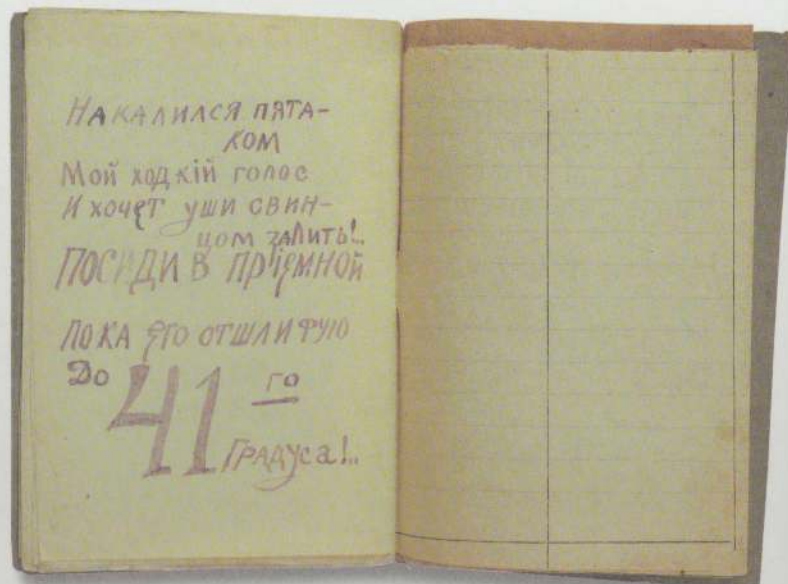 НАКАЛИЛСЯ ПЯТА-
КОМ
Мой ходкій голос
И хочет уши свин-
цом залить!..
ПОСИДИ В ПРІЕМНОЙ
ПОКА ЕГО ОТШЛИФУЮ
До 41го
Градуса!..